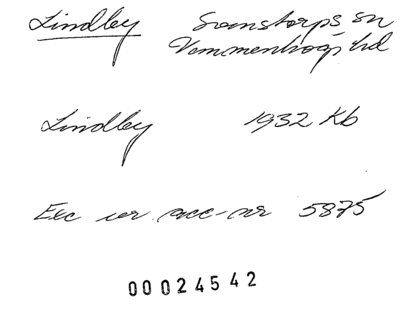 Lindley Svenstorps sn
Vemmenhögs hd
Lindley 1932 Kb
Exc ur acc-nr 5875
00024542